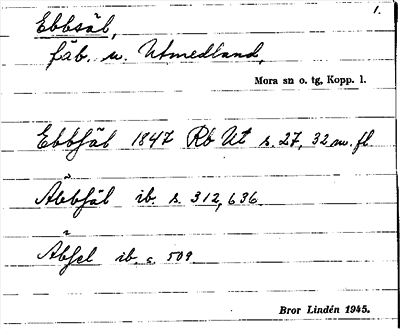 1.
Ebbsäl,
fäb. u. Utmedland,
Mora sn o. tg, Kopp. l.
Ebbsäl 1847 Rb Ut s. 27, 32 m. fl
Åbbsäl ib. s. 312, 636
Åbsel ib. s. 509
Bror Lindén 1945.